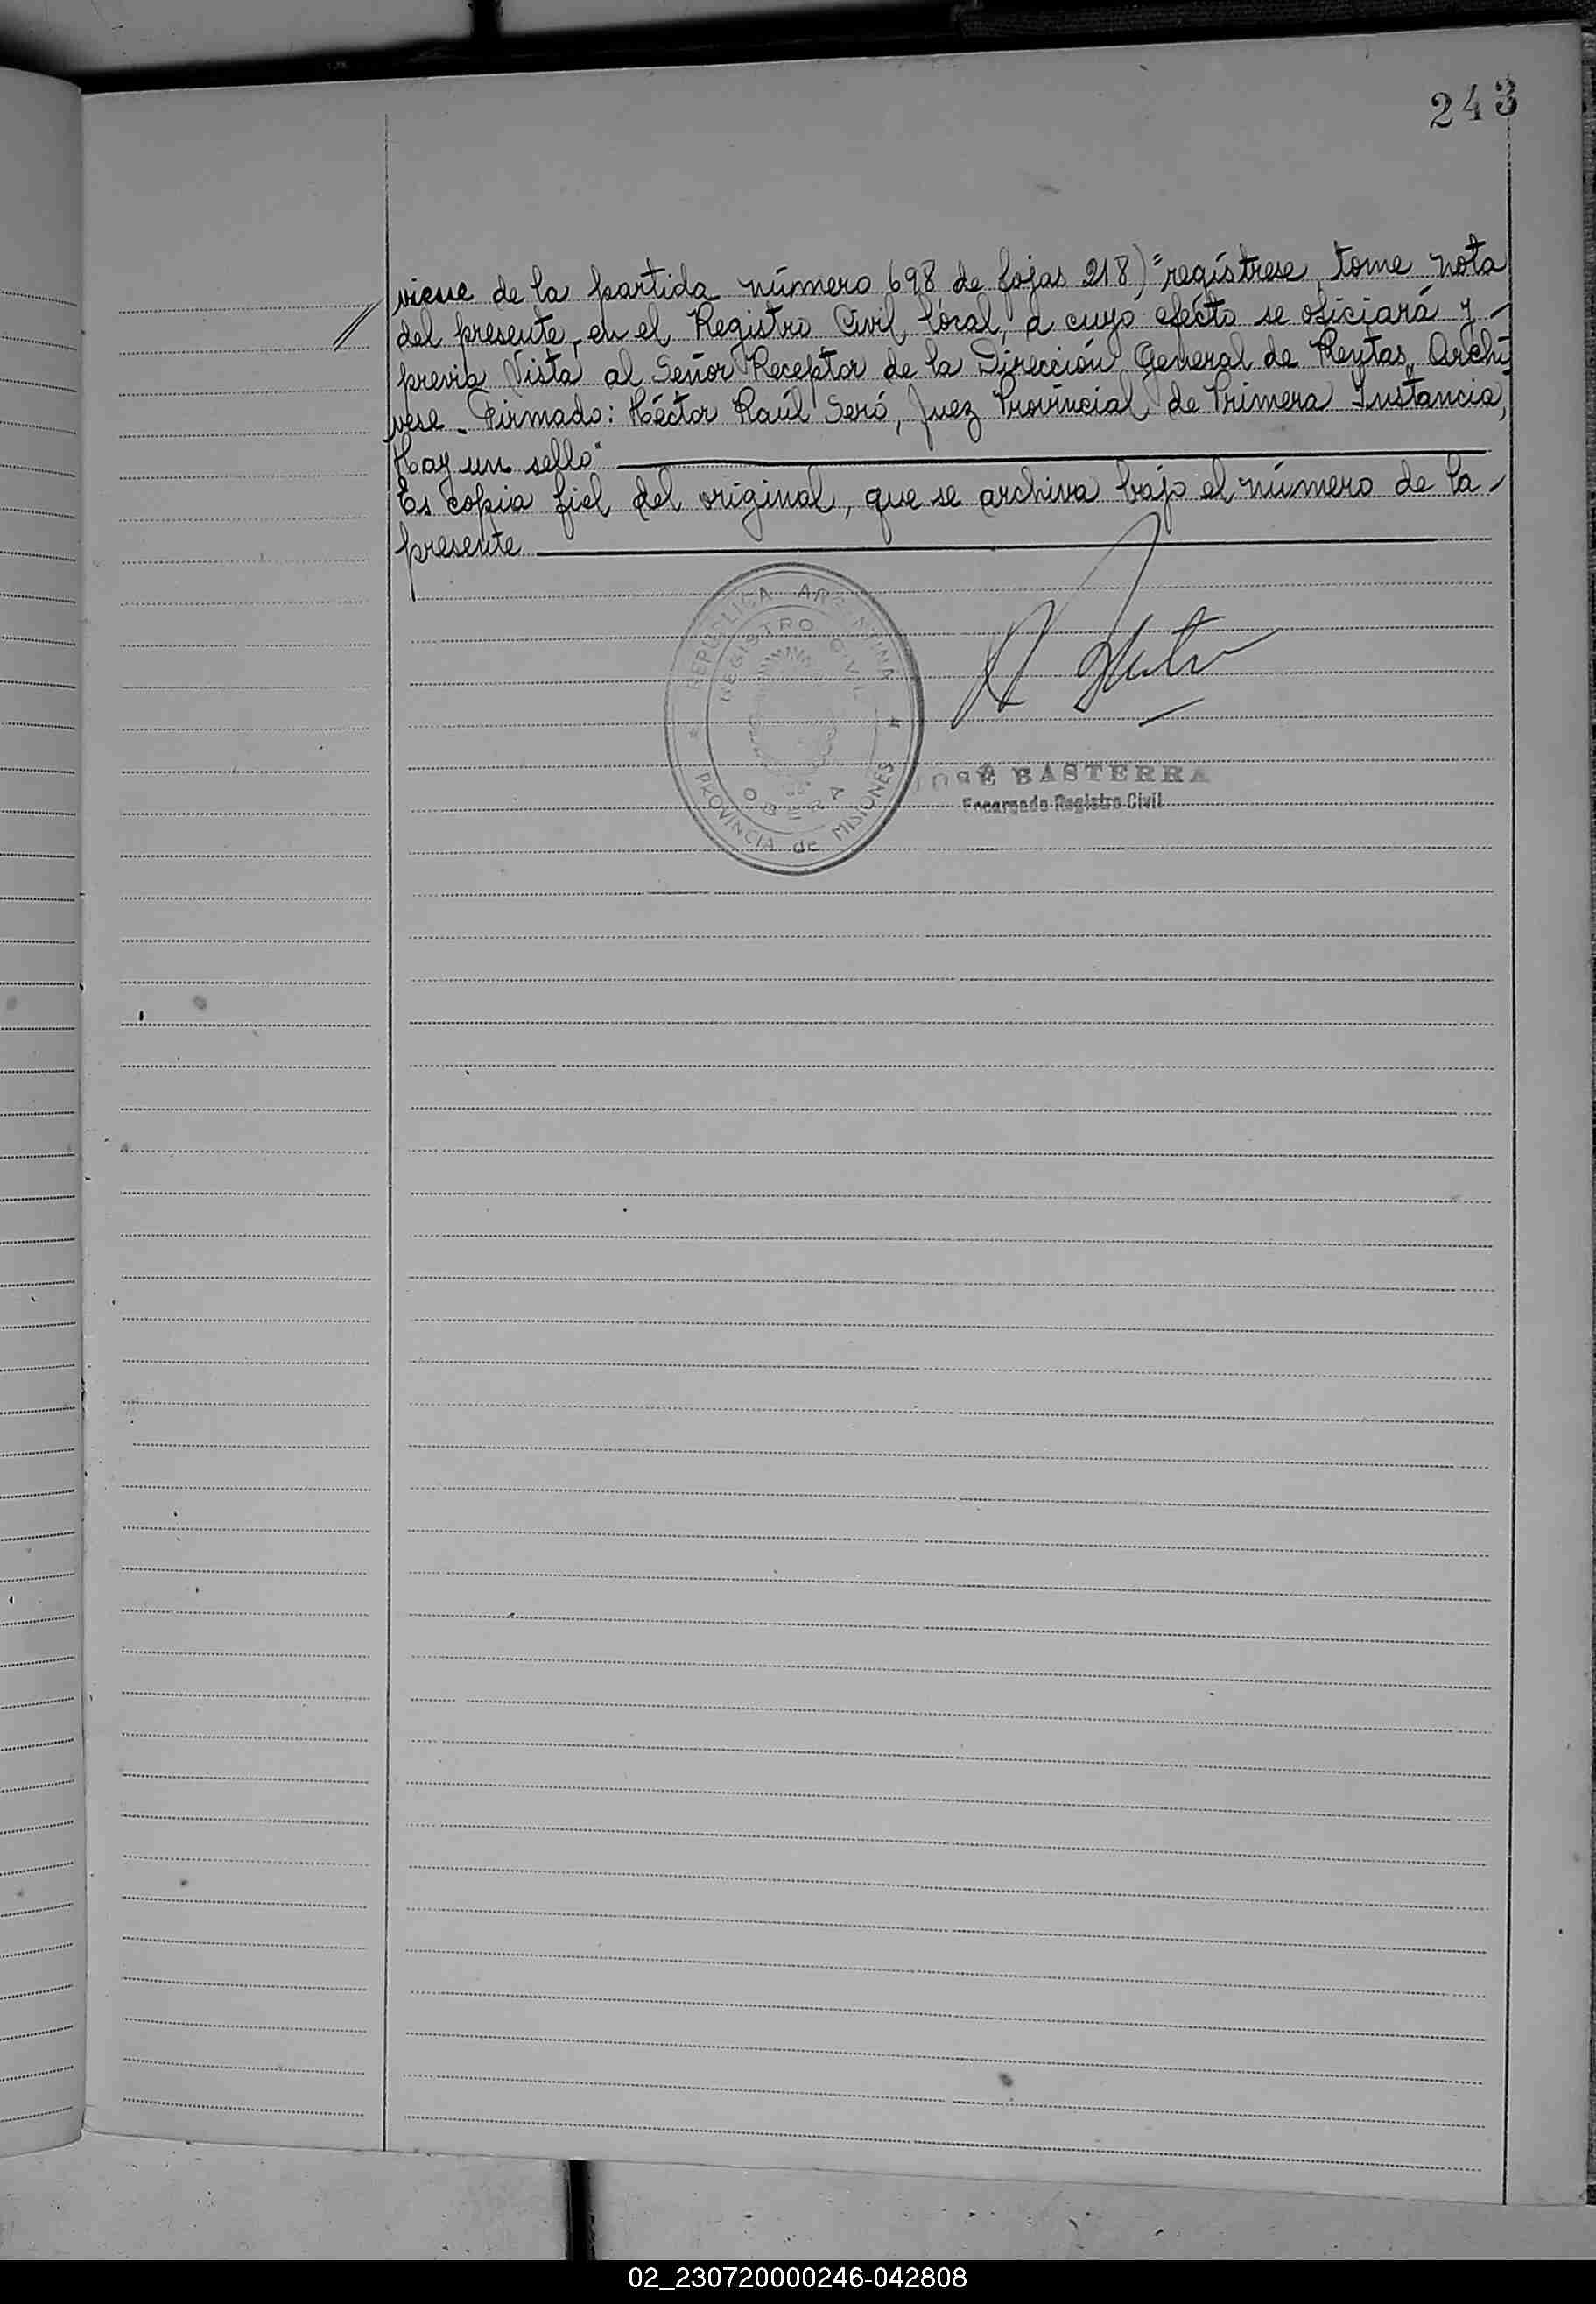 243
viene de la partida número 698 de fojas 218) "regístrese, tome nota
// del presente, en el Registro Civil local, a cuyo efecto se oficiará y -
previa Vista al Señor Receptor de la Dirección General de Rentas, Archí
vese. Firmado: Héctor Raúl Seró, Juez Provincial de Primera Instancia,
Hay un sello"
Es copia fiel del original, que se archiva bajo el número de la -
presente
REPUBLICA ARGENTINA
REGISTRO CIVIL
OBERA
PROVINCIA de MISIONES
JOSÉ BASTERRA
Encargado Registro Civil
02_230720000246-042808